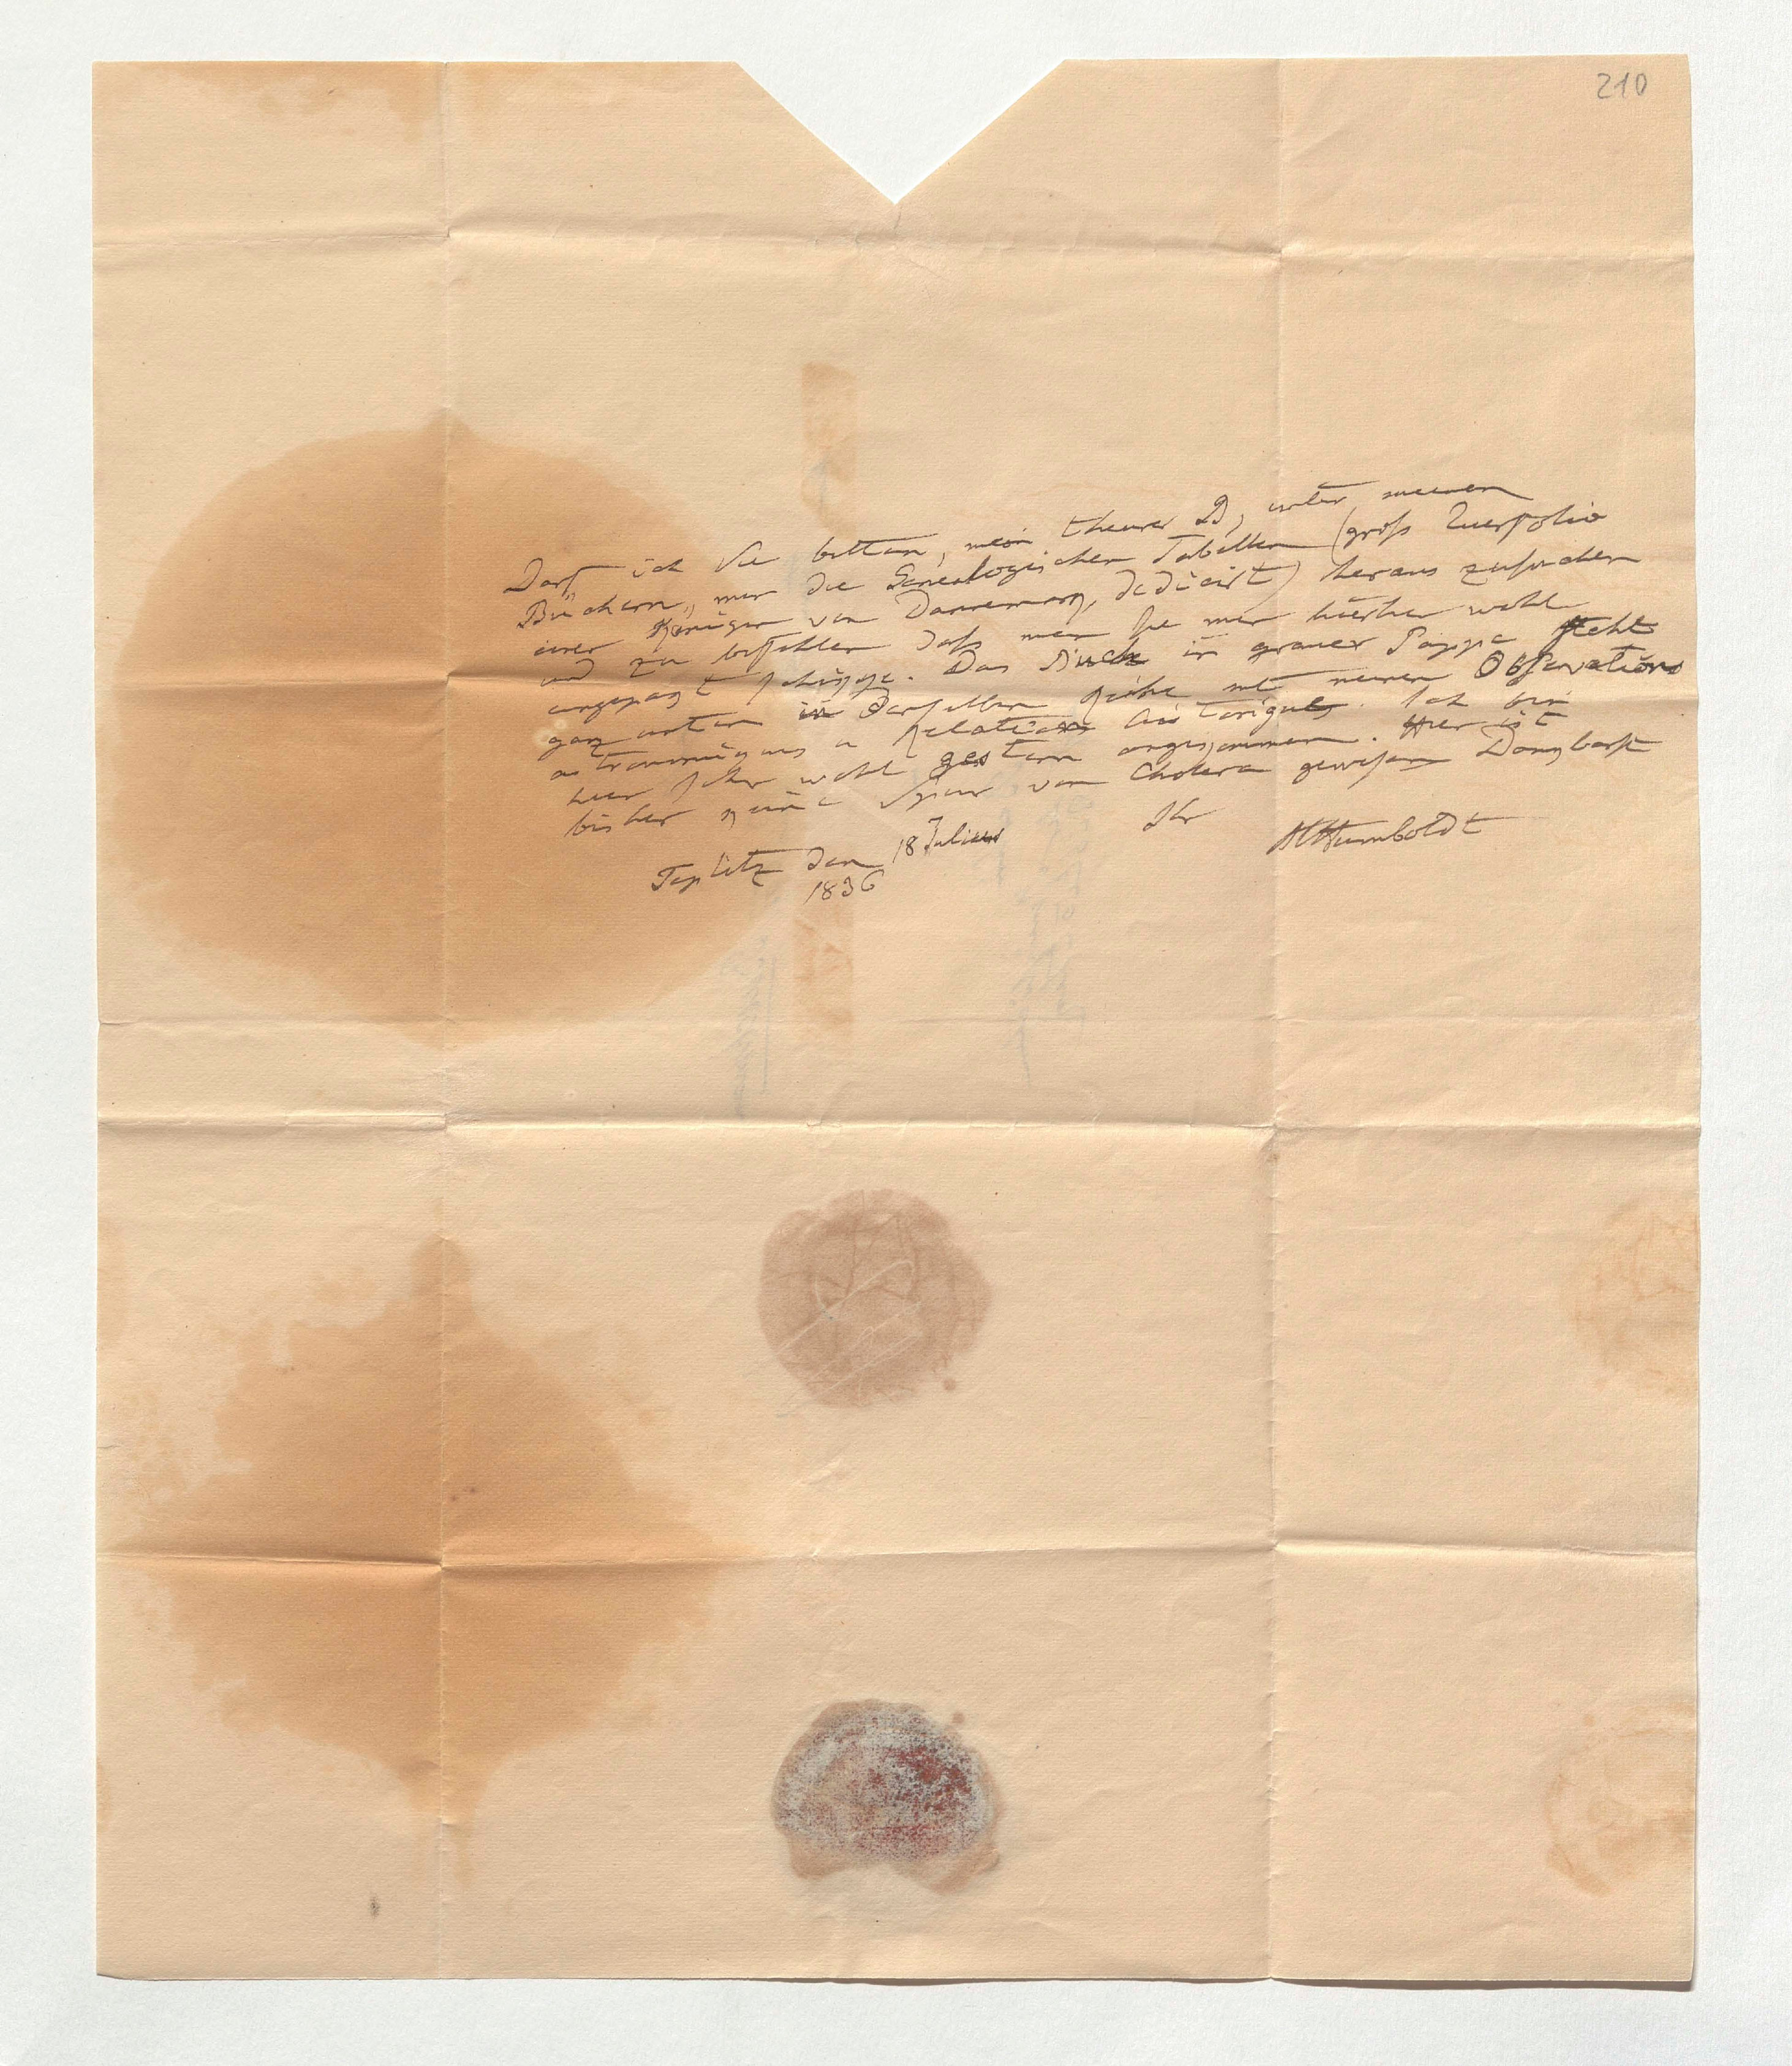 210
Darf ich Sie bitten, mein theurer B, unter meinen
Büchern, mir die Genealogischen Tabellen (groß Querfolio
einer Königin von Dannemark, dedicirt) heraus zusuchen
und zu befehlen daß man sie mir hierher wohl
eingepakt schikke. Das Buch in grauer Pappe steht
ganz unten in derselben Reihe mit meinen Observations
astronomiques u Relation historique. Ich bin
hier sehr wohl gestern angekommen. Hier ist
bisher keine Spur von Cholera gewesen Dankbarst
Ihr
AlHumboldt
Teplitz den 18 Julius
1836